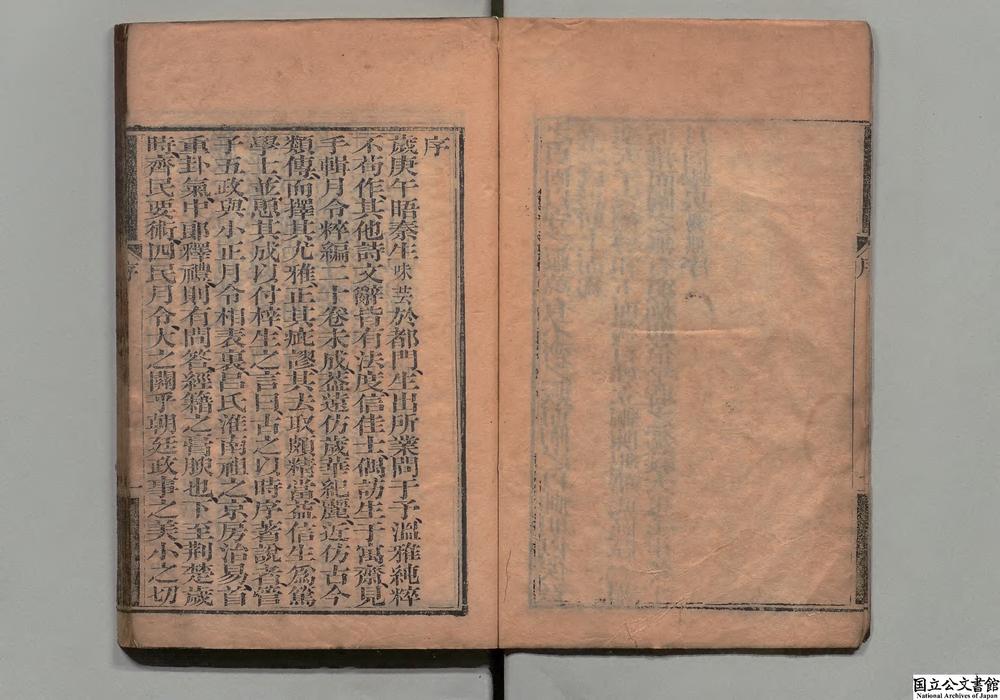 序
歲庚午晤秦生味芸於都門、生出所業問于予、溫雅純粹
不茍作、其他詩文辭皆有法度、信佳士、偶訪生于寓齋、見
手輯月令粹編二十卷未成、葢遠仿歲華紀麗、近仿古今
類傳、而擇其尤雅、正其疵謬、其去取頗精當、益信生爲篤
學士、並慂其成以付梓、生之言曰、古之以時序著說者、管
子五政與小正月令相表裏、呂氏淮南祖之、京房治易、首
重卦氣、中郞釋禮、則有問答、經籍之膏腴也、下至荆楚歲
時、齊民要術、四民月令、大之關乎朝廷政事之美、小之切
序
一
国立公文書館
National Archives of Japan